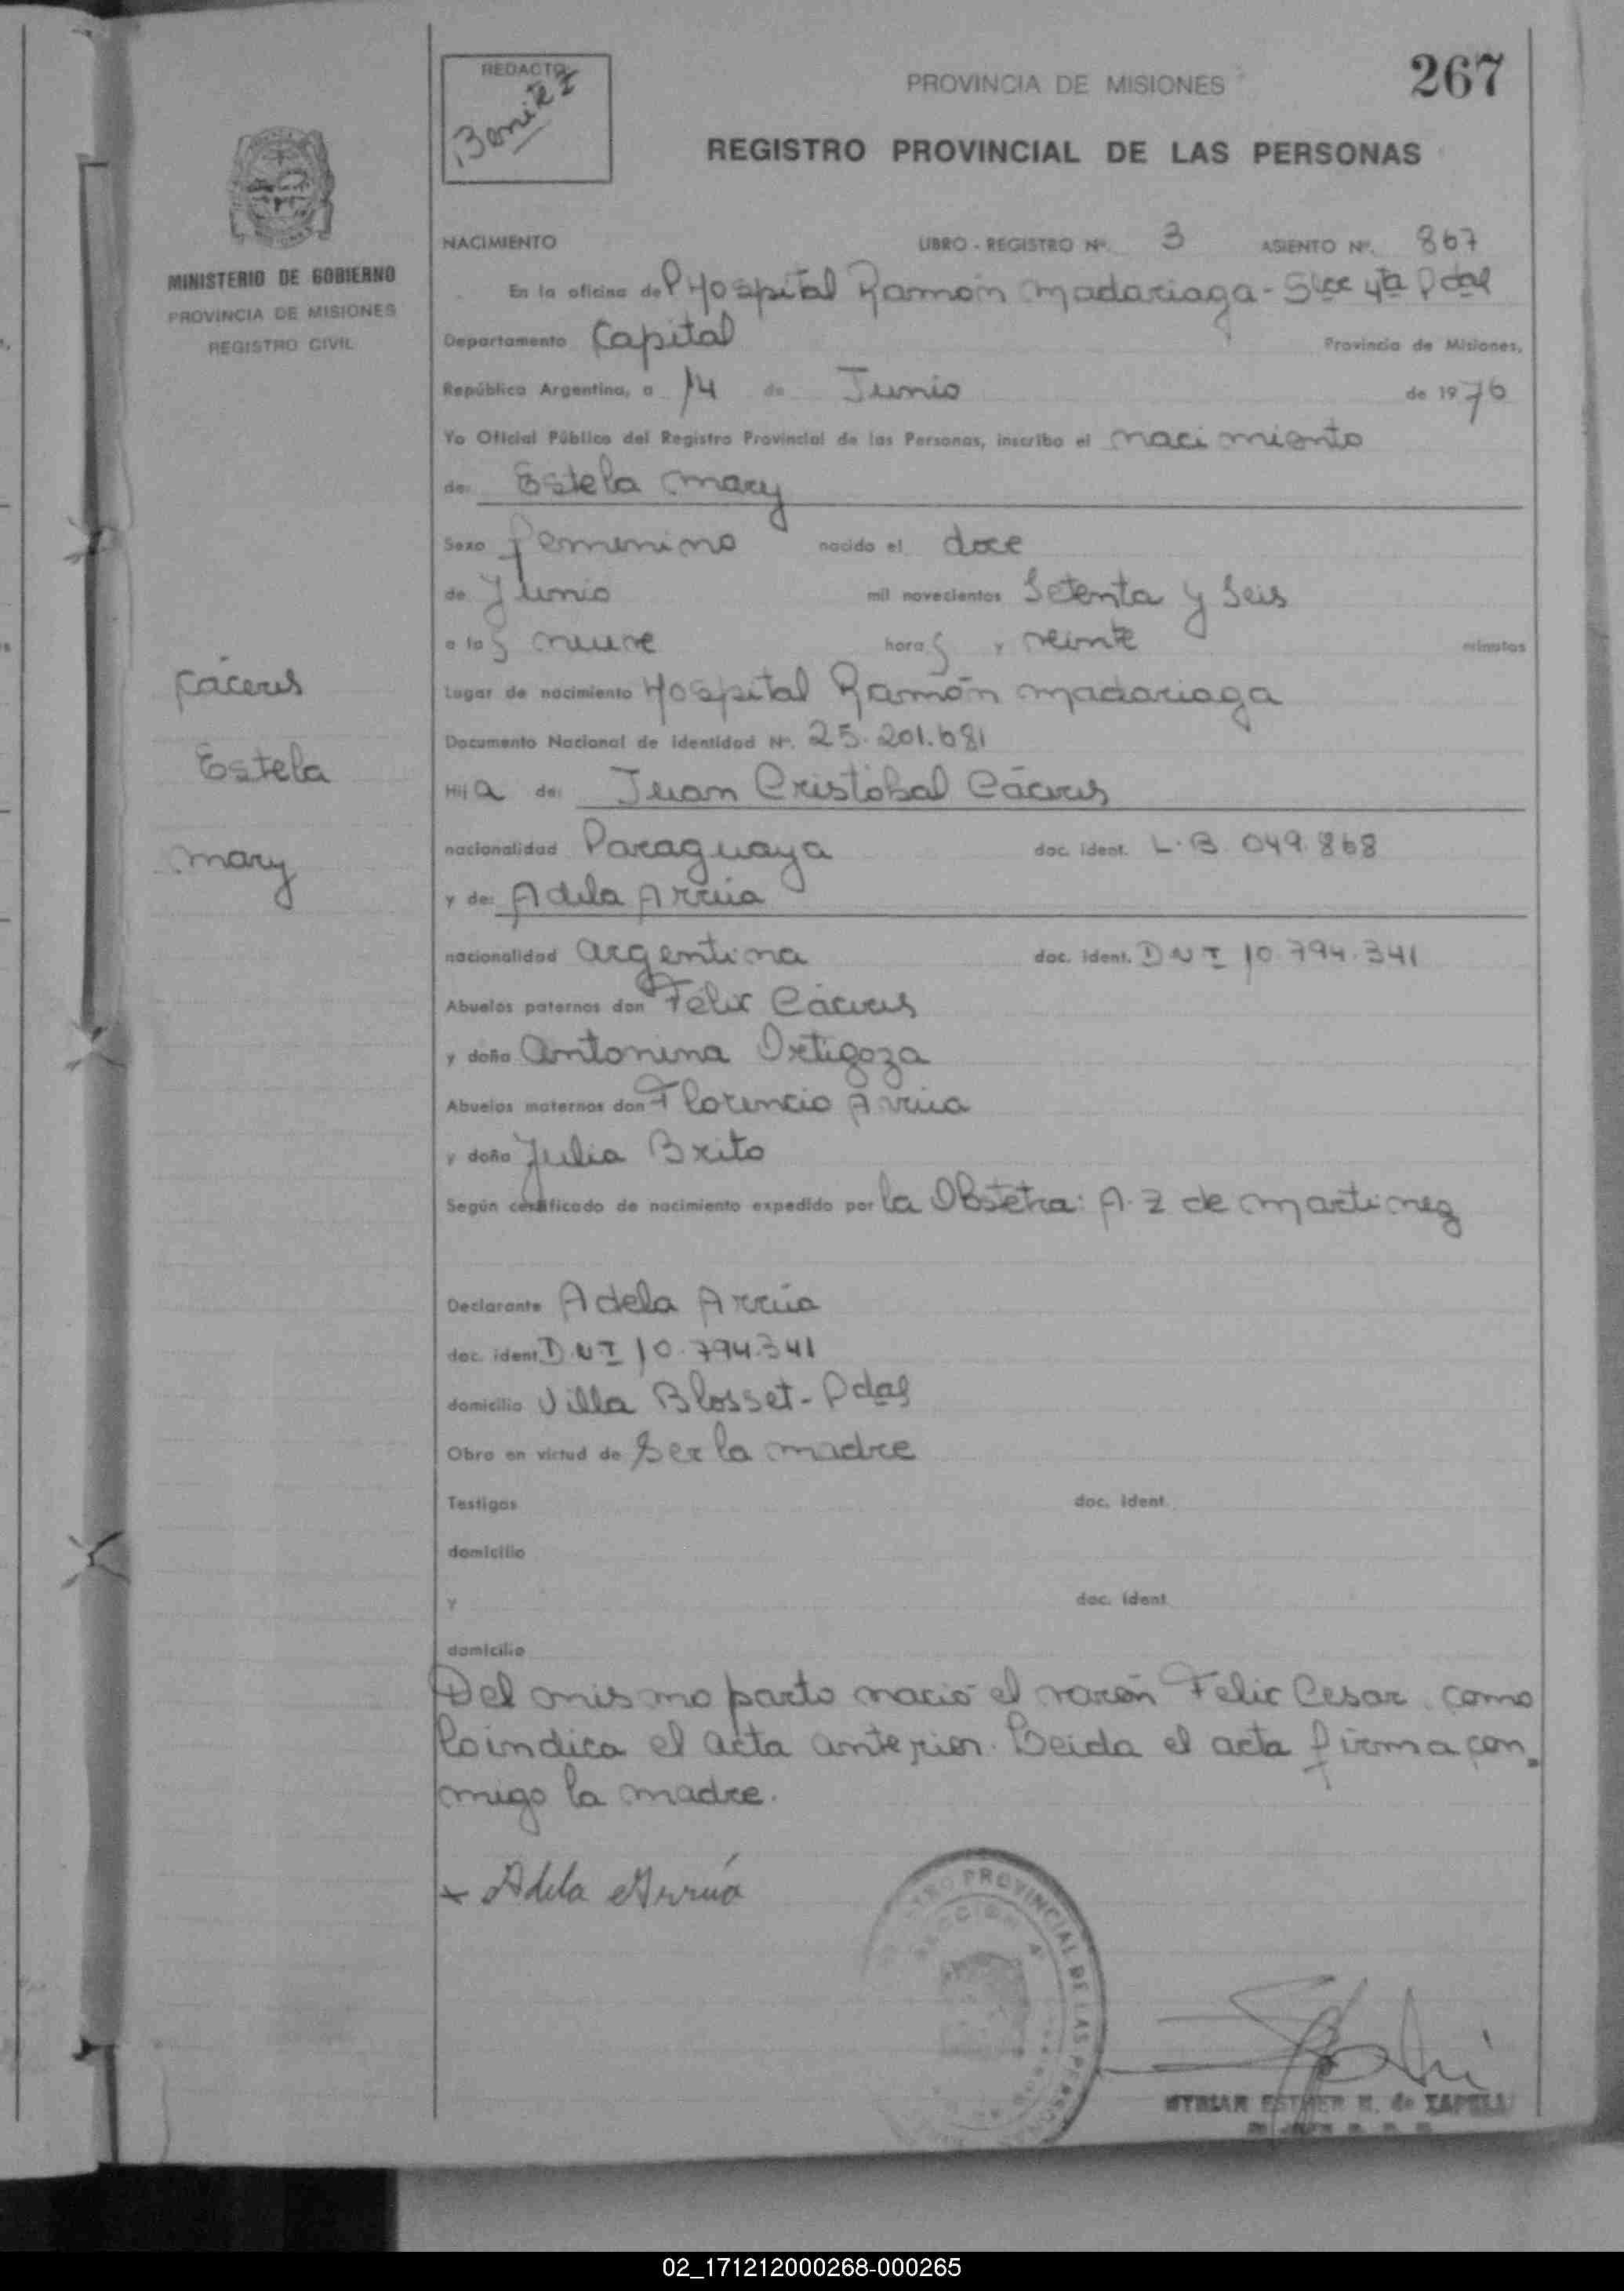 267
REDACTO:
Benitez
PROVINCIA DE MISIONES
REGISTRO PROVINCIAL DE LAS PERSONAS
MINISTERIO DE GOBIERNO
PROVINCIA DE MISIONES
REGISTRO CIVIL
NACIMIENTO LIBRO - REGISTRO Nº. 3 ASIENTO Nº. 867
En la oficina del Hospital Ramón Madariaga - Secc 4ta Pdas
Departamento Capital Provincia de Misiones,
República Argentina, a 14 de Junio de 1976
Yo Oficial Público del Registro Provincial de las Personas, inscribo el nacimiento
de: Estela Mary
Sexo femenino nacido el doce
de Junio mil novecientos Setenta y Seis
a las nueve horas y veinte minutos
Lugar de nacimiento Hospital Ramón Madariaga
Documento Nacional de identidad Nº. 25.201.681
Hija de: Juan Cristóbal Cáceres
nacionalidad Paraguaya doc. ident. L.B. 049.868
y de: Adela Arrúa
nacionalidad argentina doc. ident. DNI 10.794.341
Abuelos paternos don Félix Cáceres
y doña Antonina Ortigoza
Abuelos maternos don Florencio Arrúa
y doña Julia Brito
Según certificado de nacimiento expedido por la Obstetra: A. Z de Martinez
Declarante Adela Arrúa
doc. ident. D.N.I 10.794.341
domicilio Villa Blosset - Pdas
Obra en virtud de Ser la madre
Testigos doc. ident.
domicilio
y doc. ident.
domicilio
Del mismo parto nació el varón Felix Cesar, como
lo indica el acta anterior. Leida el acta firma con
migo la madre.
x Adela Arrúa
Cáceres
Estela
Mary
REGISTRO PROVINCIAL DE LAS PERSONAS
SECCION 4ª
MYRIAM ESTHER M. de ZAPELLI
02_171212000268-000265